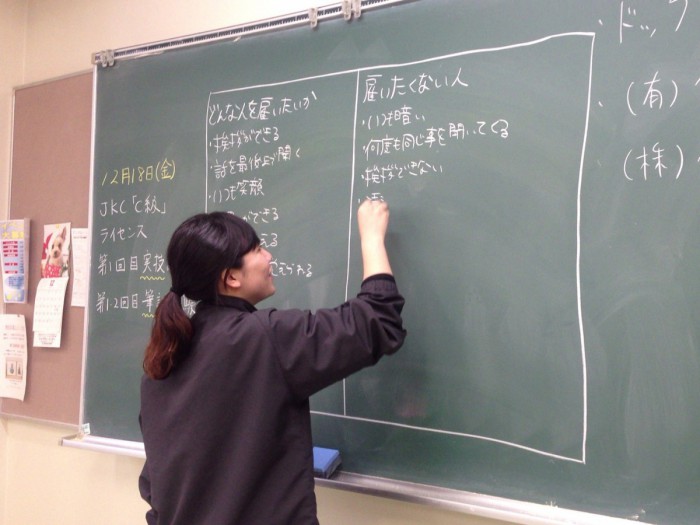 12月18日(金)
JKC「C級」
ライセンス
第1回目 実技
第1.2回目 筆
どんな人を雇いたいか
・挨拶ができる
・話を最後まで聞く
・いつも笑顔
ができる
える
雇いたくない人
・いつも暗い
・何度も同じ事を聞いてくる
・挨拶できない
・ドッグ
・(有)
(株)